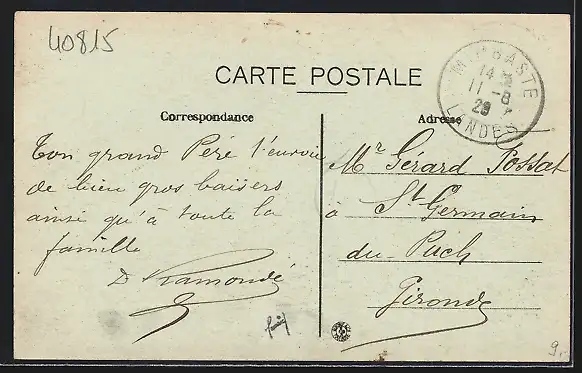 40815
CARTE POSTALE
Correspondance
Adresse
MIMBASTE
14
11 -8
29
LANDES
Ton grand Père t'envoie
de bien gros baisers
ainsi qu'à toute la
famille
D Ramondé
Mr Gérard Possat
à St Germain
du Puch
Gironde
9.-